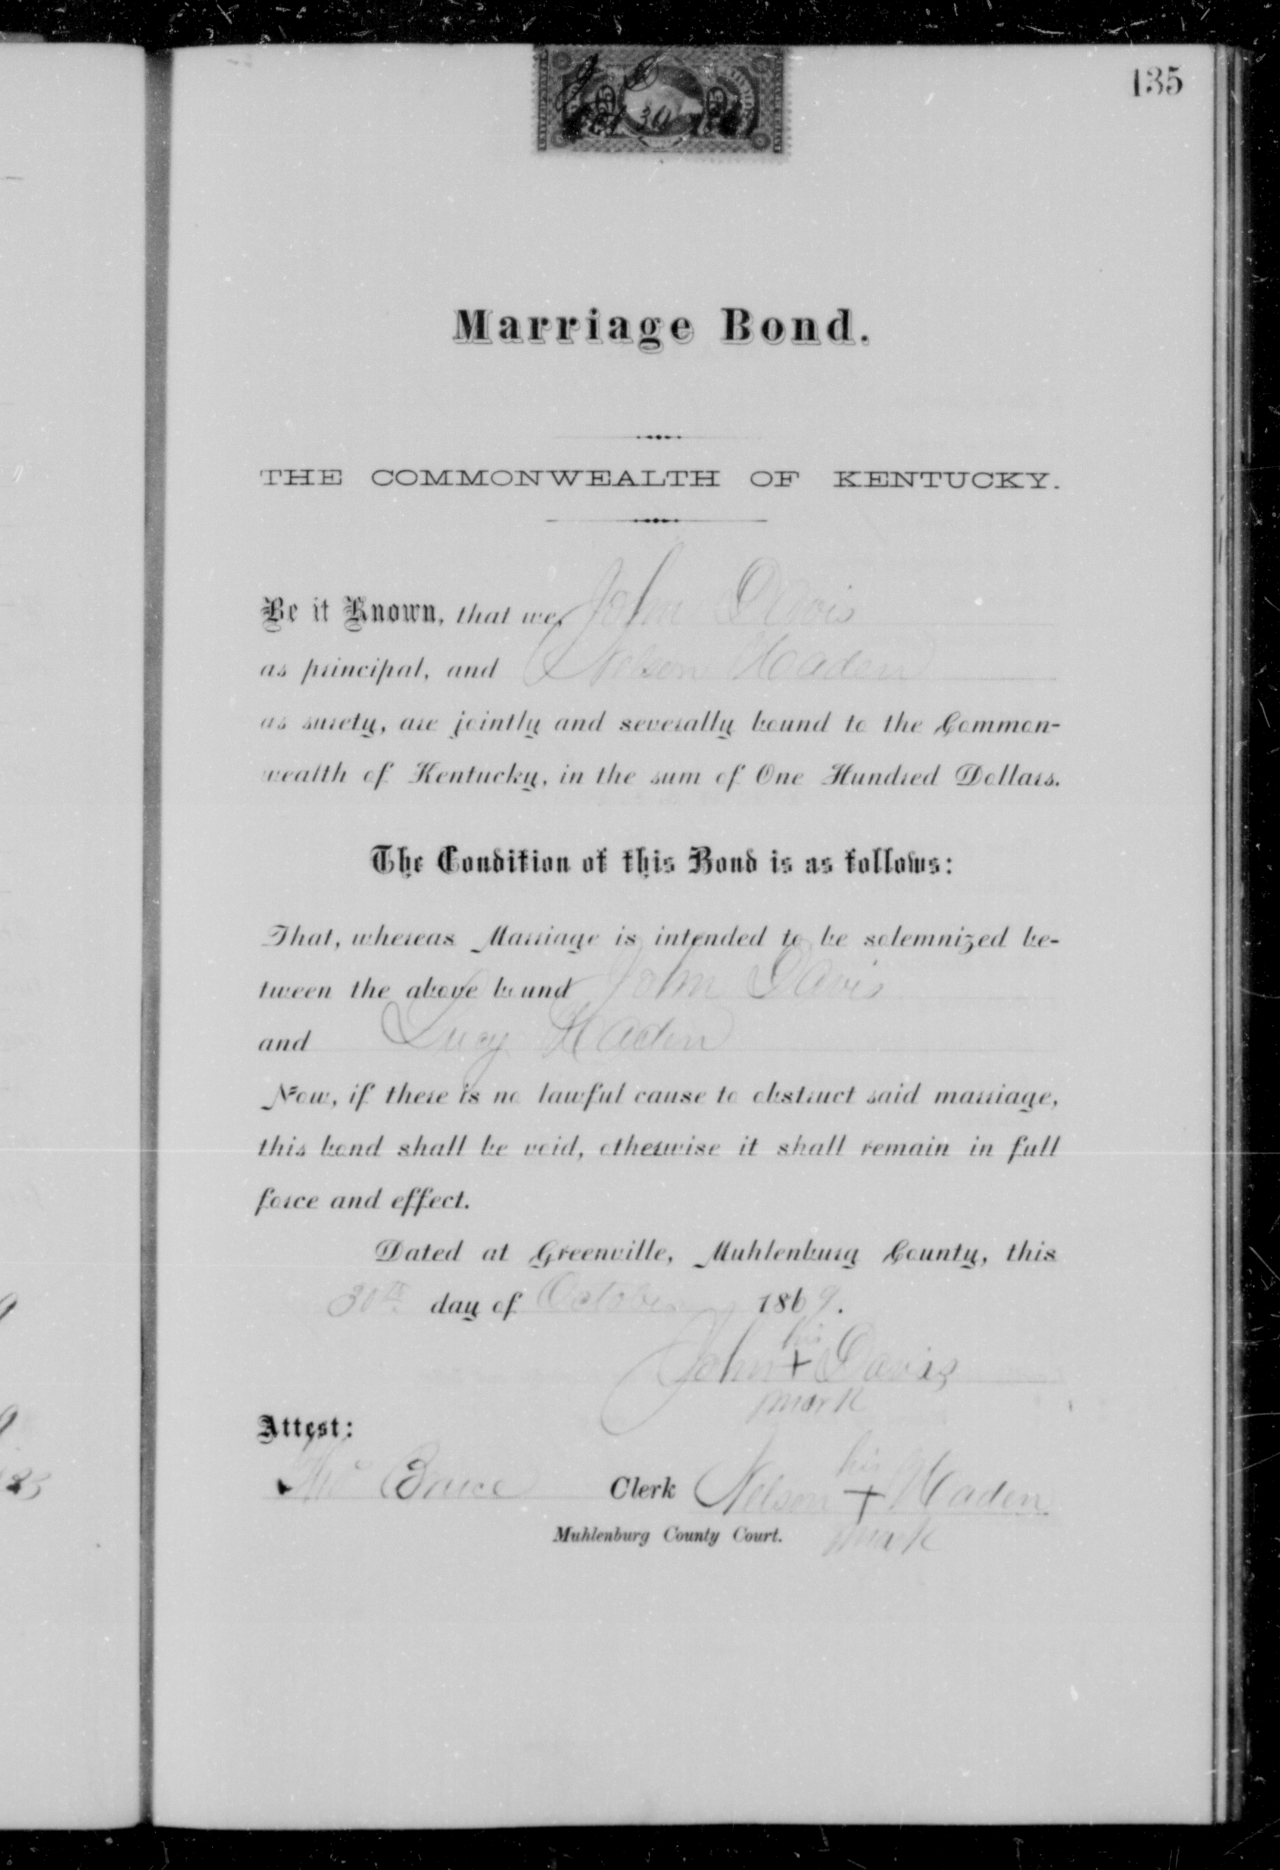 135
Marriage Bond.
THE COMMONWEALTH OF KENTUCKY.
Be it Known, that we, John Davis
as principal, and Nelson Haden
as surety, are jointly and severally bound to the Common-
wealth of Kentucky, in the sum of One Hundred Dollars.
The Condition of this Bond is as follows:
That, whereas Marriage is intended to be solemnized be-
tween the above bound John Davis
and Lucy Haden
Now, if there is no lawful cause to obstruct said marriage,
this bond shall be void, otherwise it shall remain in full
force and effect.
Dated at Greenville, Muhlenburg County, this
30th day of October 1869.
his
John + Davis
mark
Attest:
his
Bruce Clerk Nelson + Haden
Muhlenburg County Court. mark